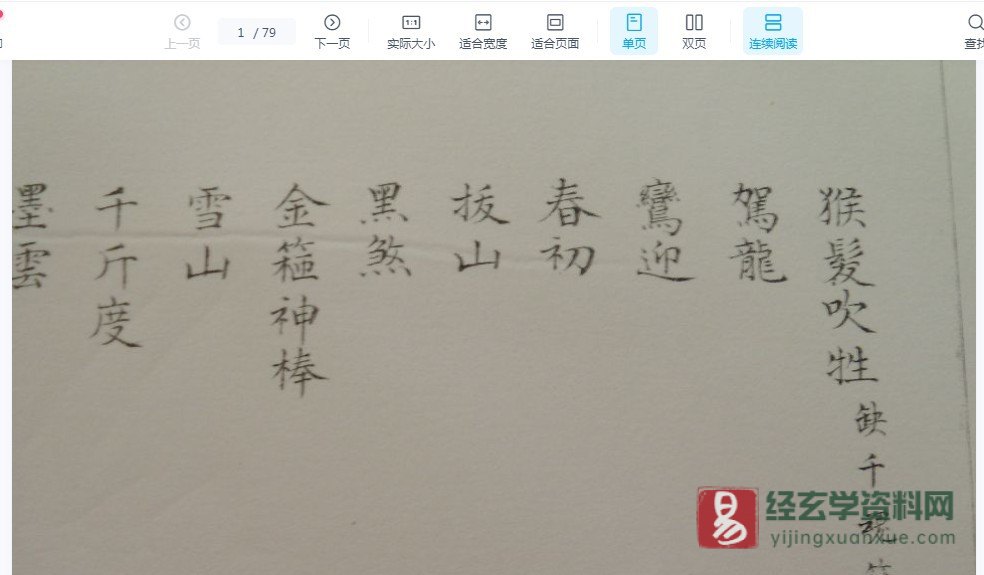 上一页
1 / 79
下一页
实际大小
适合宽度
适合页面
单页
双页
连续阅读
查找
猴髮吹牲
缺千魂
駕龍
鸞迎
春初
拔山
黑煞
金箍神棒
雪山
千斤度
墨雲
易
经玄学资料网
yijingxuanxue.com